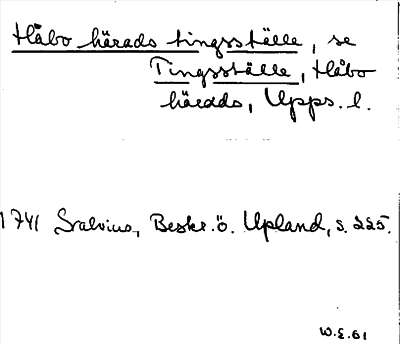 Håbo härads tingsställe, se
Tingsställe, Håbo
härads, Upps. l.
1741 Salvius, Beskr. ö. Upland, s. 225.
W.E. 61